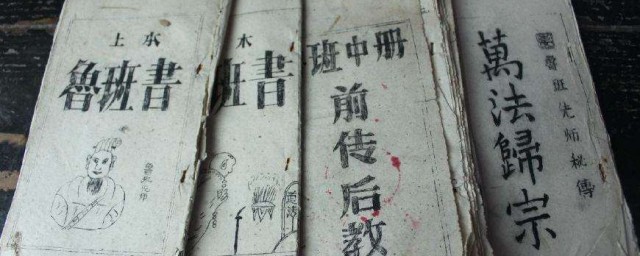 上本
魯班書
木
班書
班中册
前传后教
魯班先师秘傳
萬法歸宗